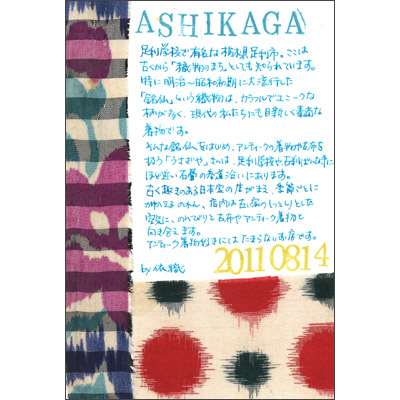 ASHIKAGA
足利学校で有名な栃木県足利市。ここは
古くから「織物のまち」としても知られています。
特に明治〜昭和初期に大流行した
「銘仙」という織物は、カラフルでユニークな
柄が多く、現代の私たちにも目新しく素敵な
着物です。
そんな銘仙をはじめ、アンティークの着物や古布を
扱う「うさぎや」さんは、足利学校や
ほど近い石畳の参道沿いにあります。
古く趣のある日本家の店がまえ、季節ごとに
のれん、店内は
空気に、のんびりと古布やアンティーク着物と
向き合えます。
アンティーク着物好きにはたまらないお店です。
by 依織
20110814